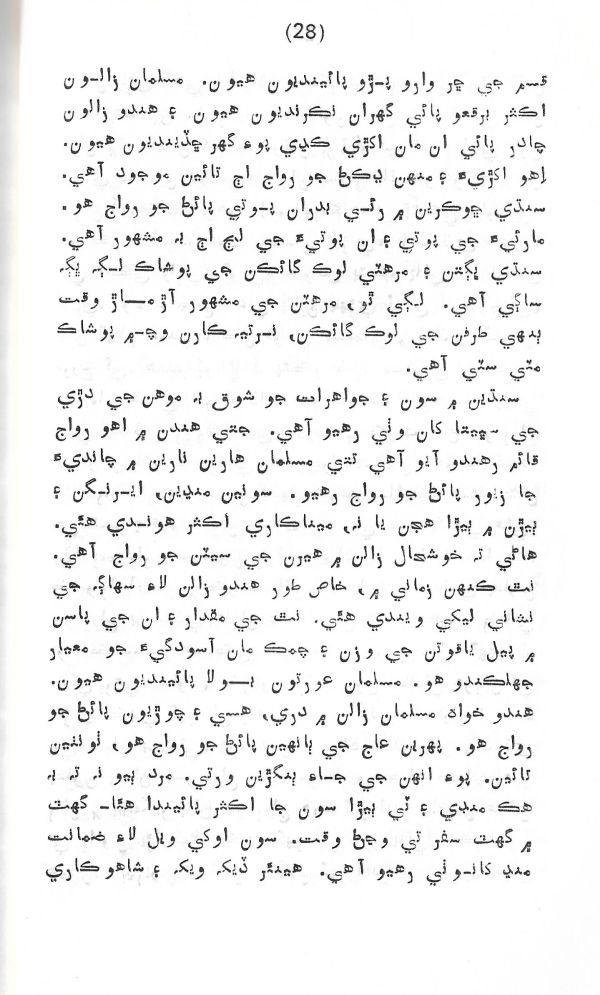 (28)
قسم جي چر وارو پـڙو پائينديون هيون. مسلمان زالـون
اڪثر برقعو پائي گهران نڪرنديون هيون ۽ هندو زالون
چادر پائي ان مان اکڙي ڪڍي پوءِ گهر ڇڏينديون هيون.
اهو اکڙيءَ ۽ منهن ڍڪڻ جو رواج اڄ تائين موجود آهي.
سنڌي ڇوڪرين ۾ رئـي بدران پـوتي پائڻ جو رواج هو.
مارئيءَ جي پوتي ۽ ان پوتيءَ جي لڄ اڄ به مشهور آهي.
سنڌي ڀڳتن ۽ مرهٽي لوڪ گائڪن جي پوشاڪ لـڳ ڀڳ
ساڳي آهي. لـڳي ٿو، مرهٽن جي مشهور آڙ مـــاڙ وقت
ٻنهي طرفن جي لوڪ گائڪن، نـرتيه ڪارن وچـ۾ پوشاڪ
مٽي سٽي آهي.
سنڌين ۾ سون ۽ جواهرات جو شوق به موهن جي دڙي
جي سڀيتا کان وٺي رهيو آهي. جتي هندن ۾ اهو رواج
قائم رهندو آيو آهي تتي مسلمان هارين نارين ۾ چانديءَ
جا زيور پائڻ جو رواج رهيو. سونين منڊين، ايـرنـگن ۽
ٻيڙن ۾ هيرا هجن يا نه، ميناڪاري اڪثر هونـدي هئي.
هاڻي ته خوشحال زالن ۾ هيرن جي سيٽن جو رواج آهي.
نٿ ڪنهن زماني ۾، خاص طور هندو زالن لاءِ سهاڳ جي
نشاني ليکي ويندي هئي. نٿ جي مقدار ۽ ان جي پاسن
۾ پيل ياقوتن جي وزن ۽ چمڪ مان آسودگيءَ جو معيار
جهلڪندو هو. مسلمان عورتون بـــولا پائينديون هيون.
هندو خواه مسلمان زالن ۾ دري، هسي ۽ چوڙيون پائڻ جو
رواج هو. پهرين عاج جي ٻانهين پائڻ جو رواج هو، ٺونٺين
تائين. پوءِ انهن جي جـاءِ بنگڙين ورتي. مرد ٻيو نه ته به
هڪ منڊي ۽ ٽي ٻيڙا سون جا اڪثر پائيندا هئا- گهٽ
۾ گهٽ سفر تي وڃڻ وقت. سون اوکي ويل لاءِ ضمانت
منڍ کانـوٺي رهيو آهي. هينئر ڏيک ويک ۽ شاهوڪاري